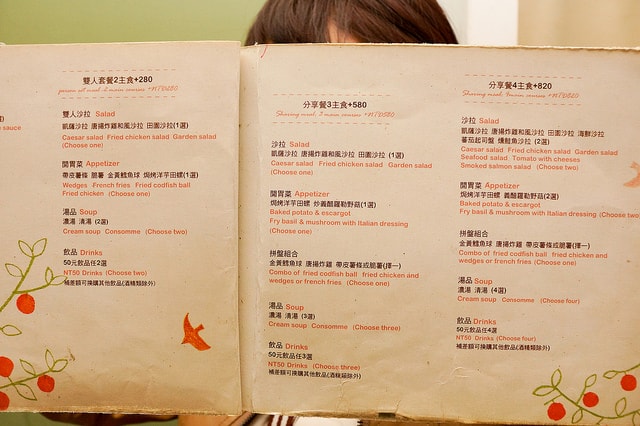 sauce
雙人套餐2主食+280
person set meal, 2 main courses +NTD280
雙人沙拉 Salad
凱薩沙拉 唐揚炸雞和風沙拉 田園沙拉(1選)
Caesar salad Fried chicken salad Garden salad
(Choose one)
開胃菜 Appetizer
帶皮薯條 脆薯 金黃鱈魚球 焗烤洋芋田螺(1選)
Wedges French fries Fried codfish ball
Fried chicken (Choose one)
湯品 Soup
濃湯 清湯 (2選)
Cream soup Consomme (Choose two)
飲品 Drinks
50元飲品任2選
NT50 Drinks (Choose two)
補差額可換購其他飲品(酒精類除外)
分享餐3主食+580
Sharing meal, 3 main courses +NTD580
沙拉 Salad
凱薩沙拉 唐揚炸雞和風沙拉 田園沙拉 (1選)
Caesar salad Fried chicken salad Garden salad
(Choose one)
開胃菜 Appetizer
焗烤洋芋田螺 炒義醋羅勒野菇(1選)
Baked potato & escargot
Fry basil & mushroom with Italian dressing
(Choose one)
拼盤組合
金黃鱈魚球 唐揚炸雞 帶皮薯條或脆薯(擇一)
Combo of fried codfish ball fried chicken and
wedges or french fries (Choose one)
湯品 Soup
濃湯 清湯 (3選)
Cream soup Consomme (Choose three)
飲品 Drinks
50元飲品任3選
NT50 Drinks (Choose three)
補差額可換購其他飲品(酒精類除外)
分享餐4主食+820
Sharing meal, 4 main courses +NTD820
沙拉 Salad
凱薩沙拉 唐揚炸雞和風沙拉 田園沙拉 海鮮沙拉
蕃茄起司盤 燻鮭魚沙拉 (2選)
Caesar salad Fried chicken salad Garden salad
Seafood salad Tomato with cheeses
Smoked salmon salad (Choose two)
開胃菜 Appetizer
焗烤洋芋田螺 義醋羅勒野菇(2選)
Baked potato & escargot
Fry basil & mushroom with Italian dressing (Choose two)
拼盤組合
金黃鱈魚球 唐揚炸雞 帶皮薯條或脆薯(擇一)
Combo of fried codfish ball fried chicken and
wedges or french fries (Choose one)
湯品 Soup
濃湯 清湯 (4選)
Cream soup Consomme (Choose four)
飲品 Drinks
50元飲品任4選
NT50 Drinks (Choose four)
補差額可換購其他飲品(酒精類除外)